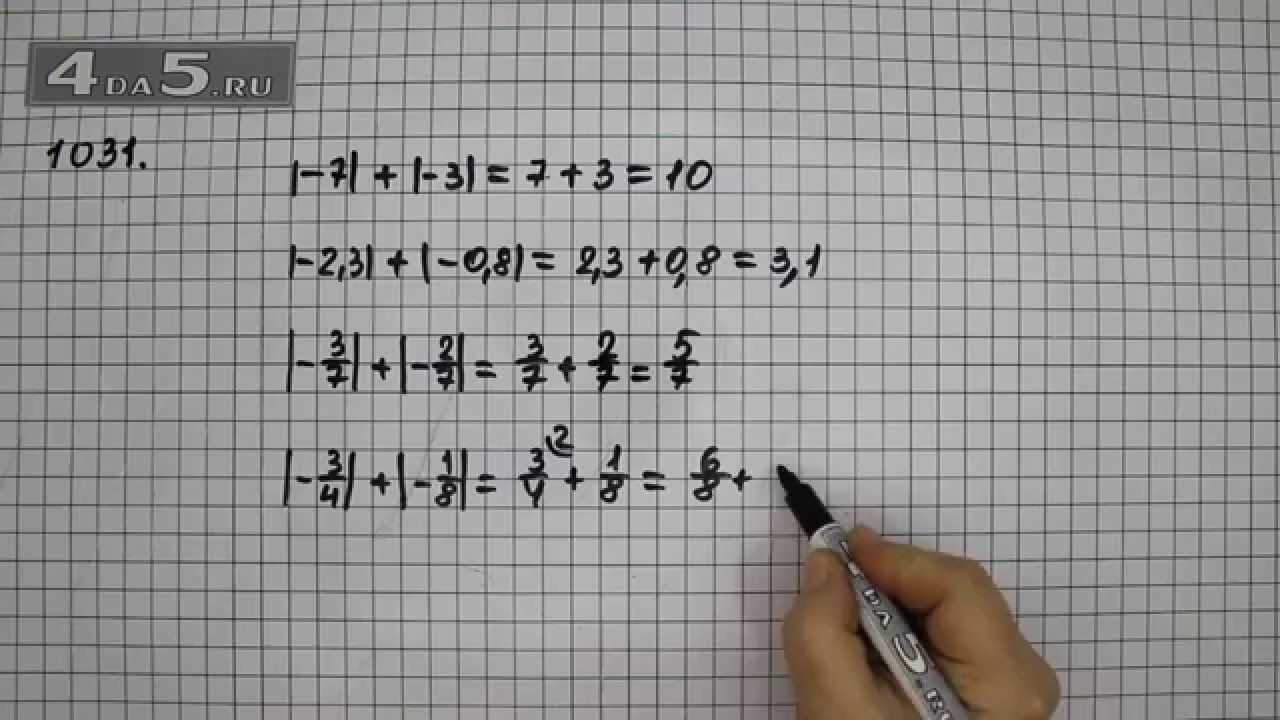 4DA5.RU
1031.
|-7| + |-3| = 7 + 3 = 10
|-2,3| + |-0,8| = 2,3 + 0,8 = 3,1
|-3/7| + |-2/7| = 3/7 + 2/7 = 5/7
|-3/4| + |-1/8| = 3/4 ² + 1/8 = 6/8 +